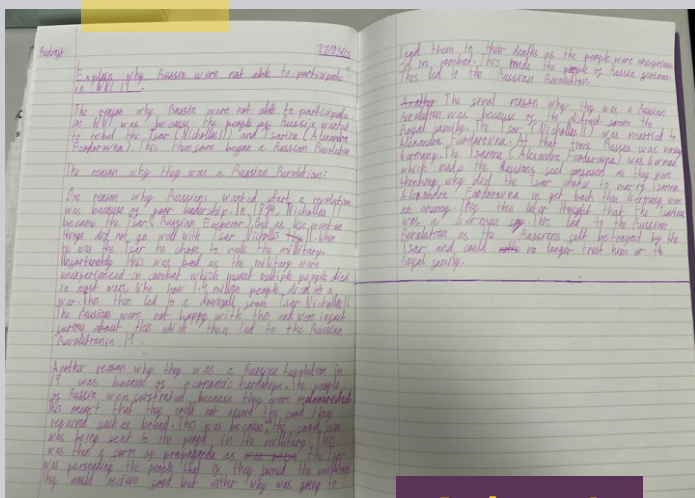 Redraft 27/03/23
Explain why Russia were not able to participate
in WW1 19
The reason why Russia were not able to participate
in WW1 was because the people of Russia wanted
to rebel the Tsar (Nicholas II) and Tsarina (Alexandra
Feodorovna). This then some began a Russian Revolution
The reason why they was a Russian Revolution:
One reason why Russians wanted start a revolution
was because of poor leadership. In 1894, Nicholas II
became the Tsar (Russian Emperor) but as life went on
things did not go well with Tsar Nicholas II. When
he was the Tsar he chose to rule the military.
Unfortunately this was bad as the military were
unexperienced in combat which meant multiple people died
in most wars like how 1.4 million people died at a
war. This then led to a downfall from Tsar Nicholas II.
The Russians were not happy with this and were in fact
furious about this which then led to the Russian
Revolution in 19
Another reason why they was a Russian Revolution in
19 was because of economic hardships. The people
of Russia were frustrated because they were malnourished
this meant that they could not afford the food they
required such as bread. This was because the food was
was being sent to the people in the military. This
was then a form of propaganda as the Tsar
was persuading the people that if they joined the military
they would receive food but other why was going to
lead them to their deaths as the people were unexperienced
in combat. This made the people of Russia furious
This led to the Russian Revolution.
Another The final reason why they was a Russian
Revolution was because of the distrust from the
Royal family. The Tsar (Nicholas II) was married to
Alexandra Feodorovna. At that time Russia was
Germany. The Tsarina (Alexandra Feodorovna) was German
which made the Russians feel confused as they were
thinking why did the Tsar chose to marry Tsarina
Alexandra Feodorovna if back then Germany were
an enemy. They then later thought that the Tsarina
was a German spy. This led to the Russian
Revolution as the Russians felt betrayed by the
Tsar and could no longer trust him or the
Royal family.